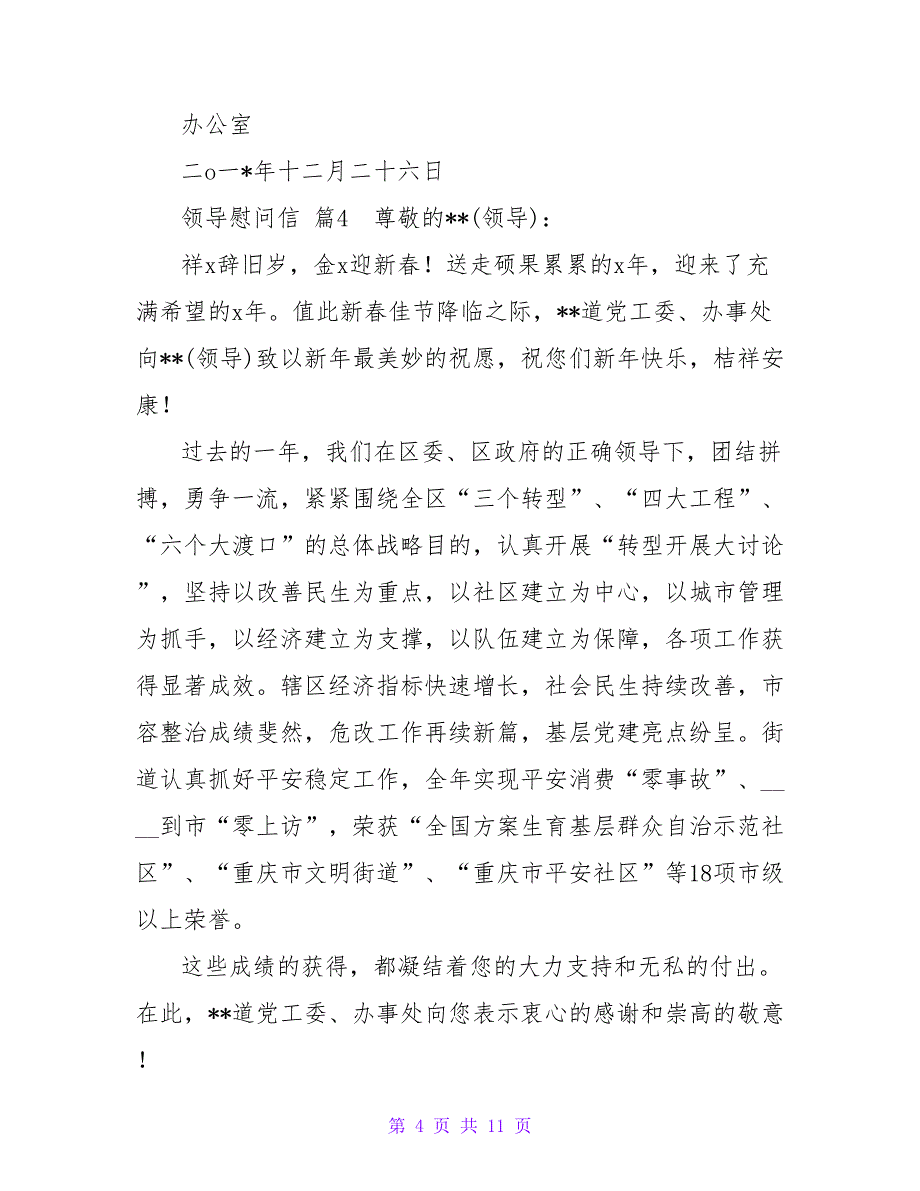 办公室
二o一*年十二月二十六日
领导慰问信 篇4  尊敬的**(领导)：
祥x辞旧岁，金x迎新春！送走硕果累累的x年，迎来了充
满希望的x年。值此新春佳节降临之际，**道党工委、办事处
向**(领导)致以新年最美妙的祝愿，祝您们新年快乐，桔祥安
康！
过去的一年，我们在区委、区政府的正确领导下，团结拼
搏，勇争一流，紧紧围绕全区“三个转型”、“四大工程”、
“六个大渡口”的总体战略目的，认真开展“转型开展大讨论
”，坚持以改善民生为重点，以社区建立为中心，以城市管理
为抓手，以经济建立为支撑，以队伍建立为保障，各项工作获
得显著成效。辖区经济指标快速增长，社会民生持续改善，市
容整治成绩斐然，危改工作再续新篇，基层党建亮点纷呈。街
道认真抓好平安稳定工作，全年实现平安消费“零事故”、__
__到市“零上访”，荣获“全国方案生育基层群众自治示范社
区”、“重庆市文明街道”、“重庆市平安社区”等18项市级
以上荣誉。
这些成绩的获得，都凝结着您的大力支持和无私的付出。
在此，**道党工委、办事处向您表示衷心的感谢和崇高的敬意
！
第 4 页 共 11 页